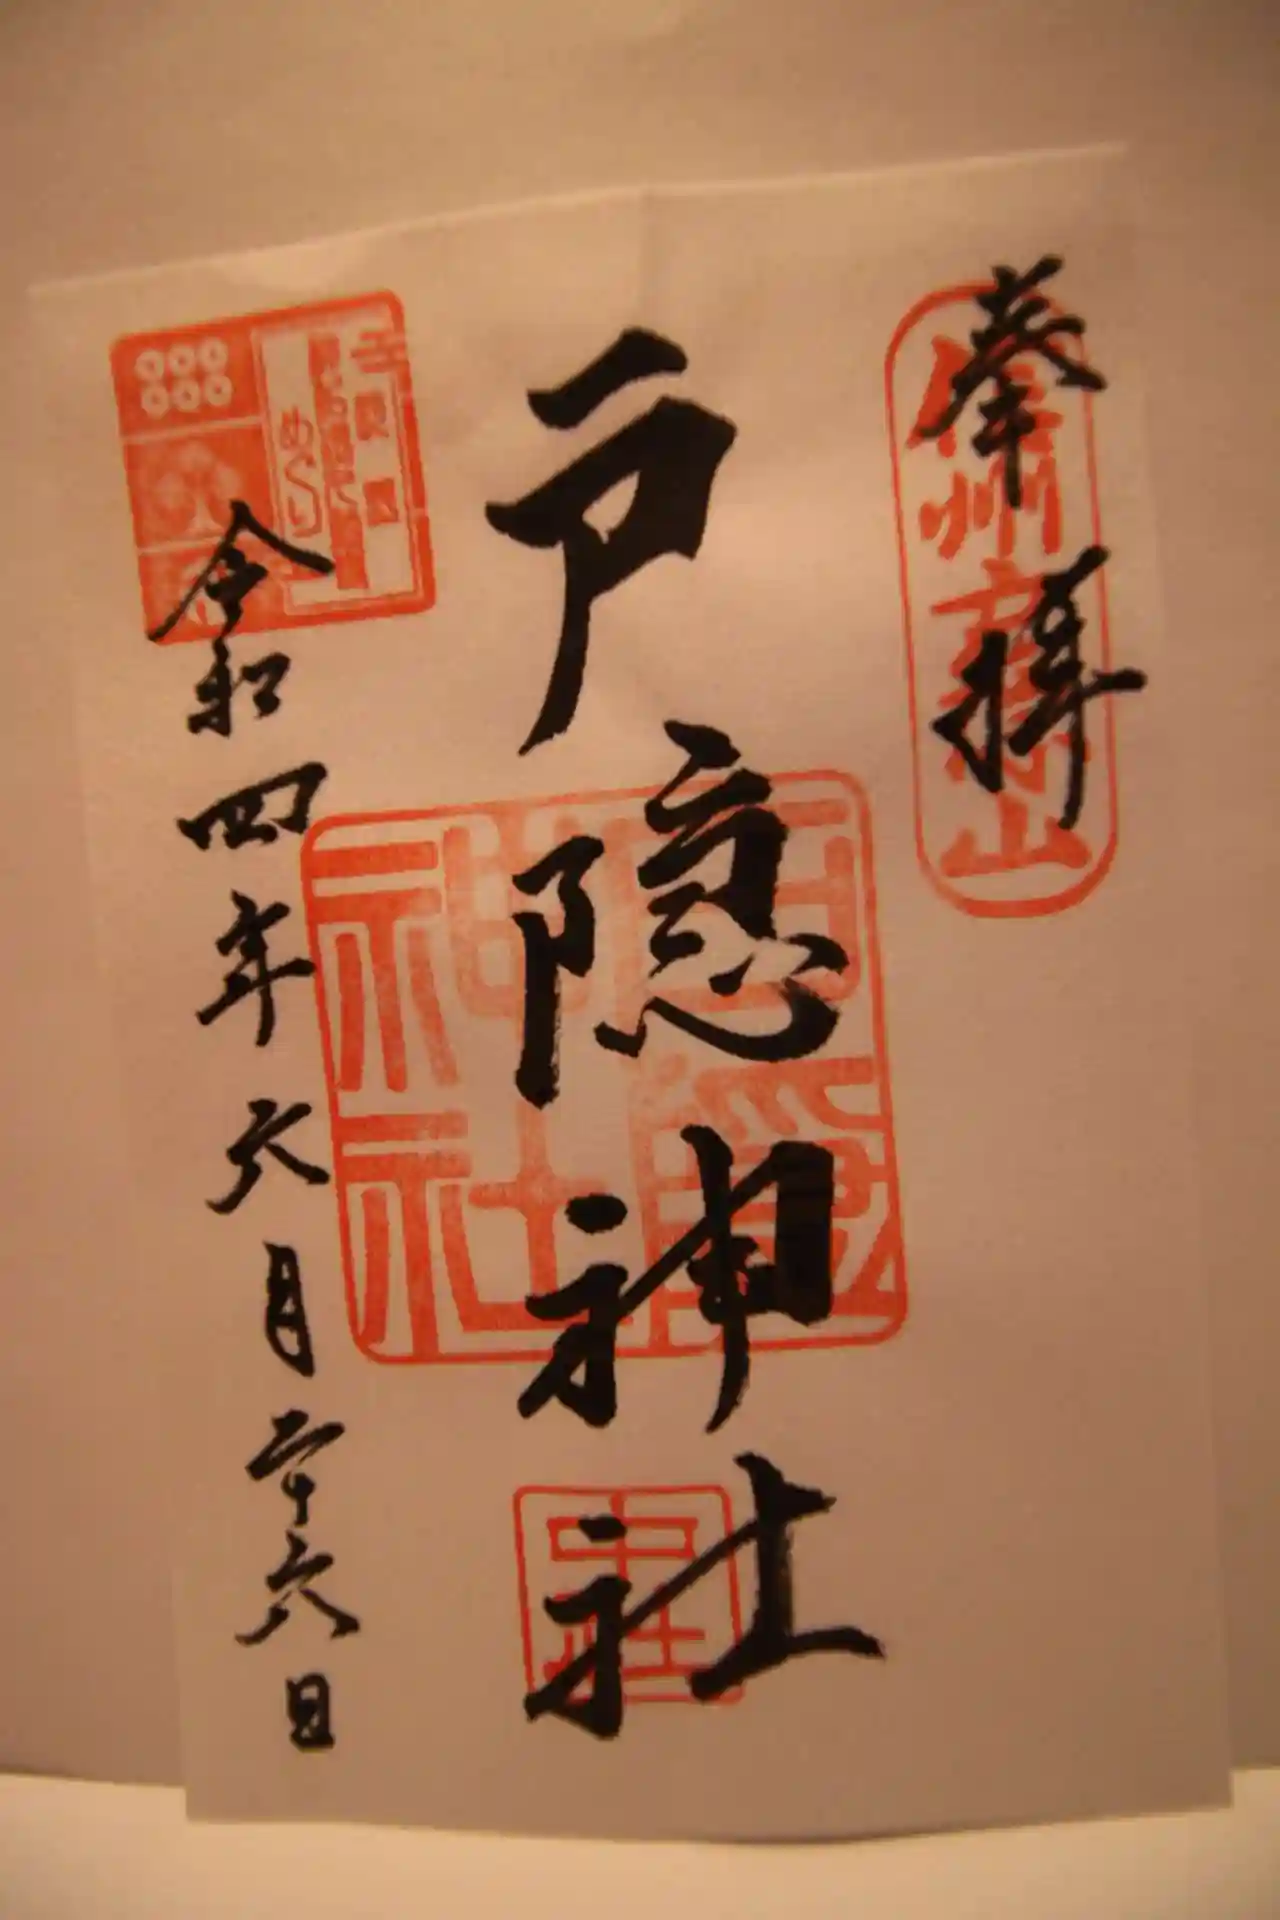 奉拝
信州戸隠山
戸隠神社
戸隠神社
中社
めぐり
令和四年六月二十六日